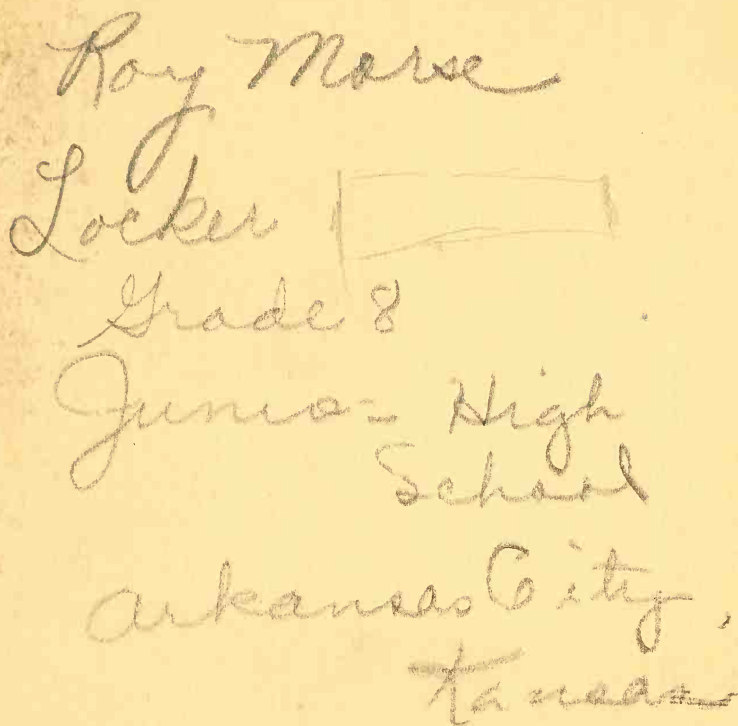 Roy Morse
Locker
Grade 8
Junior High
School
Arkansas City,
Kansas